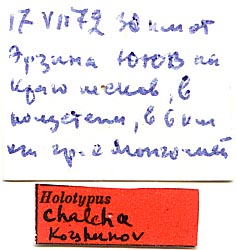 17 VII 72 30 км от
Эрзина ЮЮВ на
краю песков, в
полустепи, в 6 км
от гр. с Монголией
Holotypus
chalcha
Korshunov